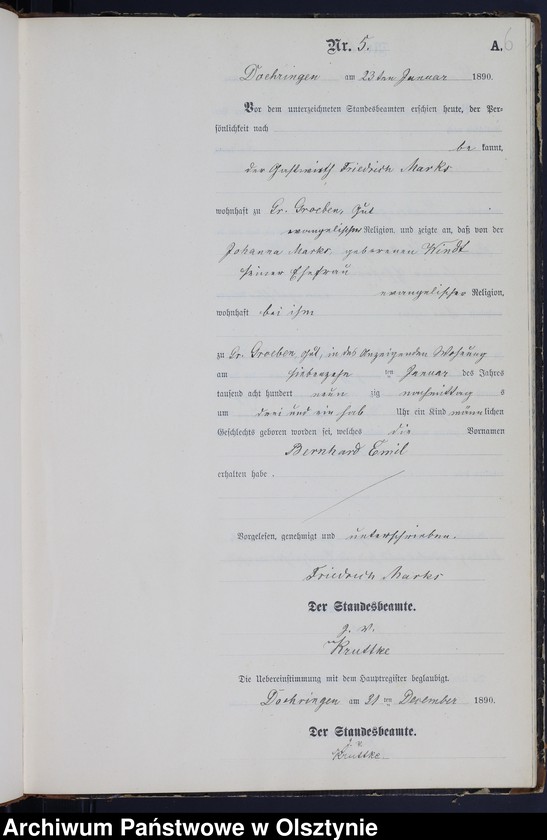 Nr. 5.
A. 6
Doehringen am 23ten Januar 1890.
Vor dem unterzeichneten Standesbeamten erschien heute, der Per-
sönlichkeit nach
be kannt,
der Gastwirth Friedrich Marks
wohnhaft zu Gr. Groeben, Gut
evangelischer Religion, und zeigte an, daß von der
Johanna Marks, geborenen Windt
seiner Ehefrau
evangelischer Religion,
wohnhaft bei ihm
zu Gr. Groeben, Gut, in des Anzeigenden Wohnung
am siebenzehn ten Januar des Jahres
tausend acht hundert neun zig nachmittag s
um drei und ein halb Uhr ein Kind männ lichen
Geschlechts geboren worden sei, welches die Vornamen
Bernhard Emil
erhalten habe .
Vorgelesen, genehmigt und unterschrieben.
Friedrich Marks
Der Standesbeamte.
J. V.
Kruttke
Die Uebereinstimmung mit dem Hauptregister beglaubigt.
Doehringen am 31 ten December 1890.
Der Standesbeamte.
J. V.
Kruttke
Archiwum Państwowe w Olsztynie